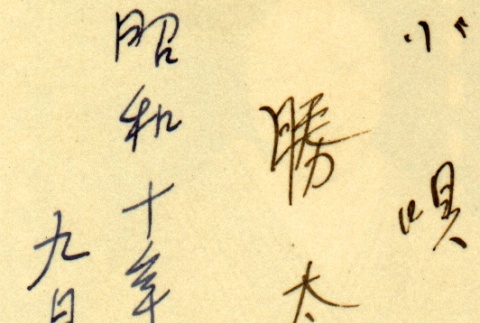 小唄
勝太
昭和十年
九月